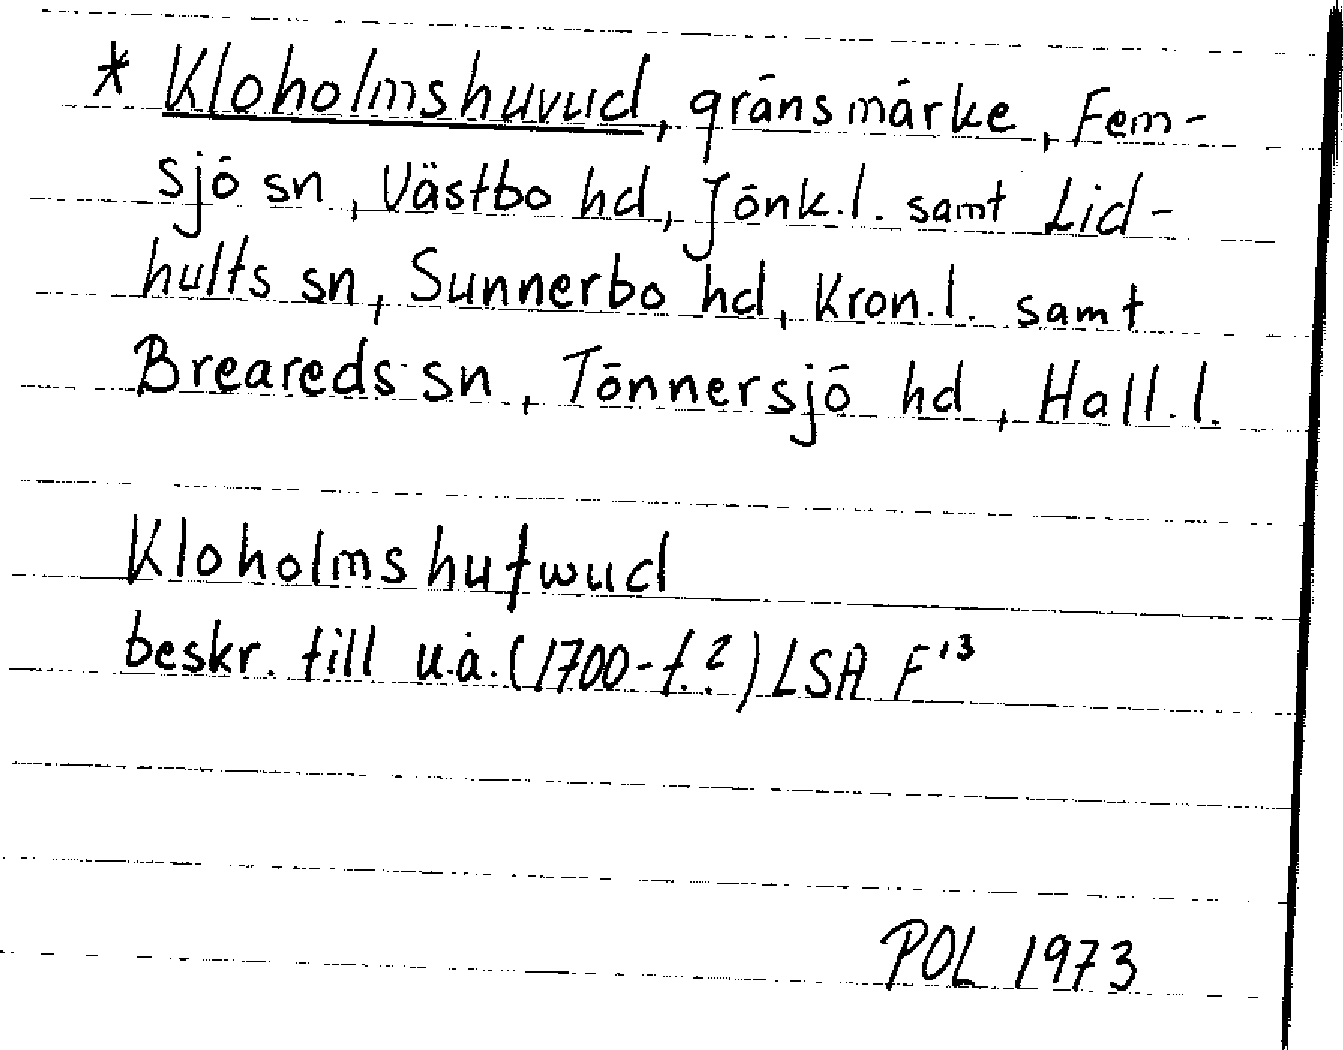 * Kloholmshuvud, gränsmärke, Fem-
sjö sn, Västbo hd, Jönk.l. samt Lid-
hults sn, Sunnerbo hd, Kron.l. samt
Breareds sn, Tönnersjö hd, Hall.l.
Kloholmshufwud
beskr. till u.å. (1700-t.?) LSA F¹³
POL 1973